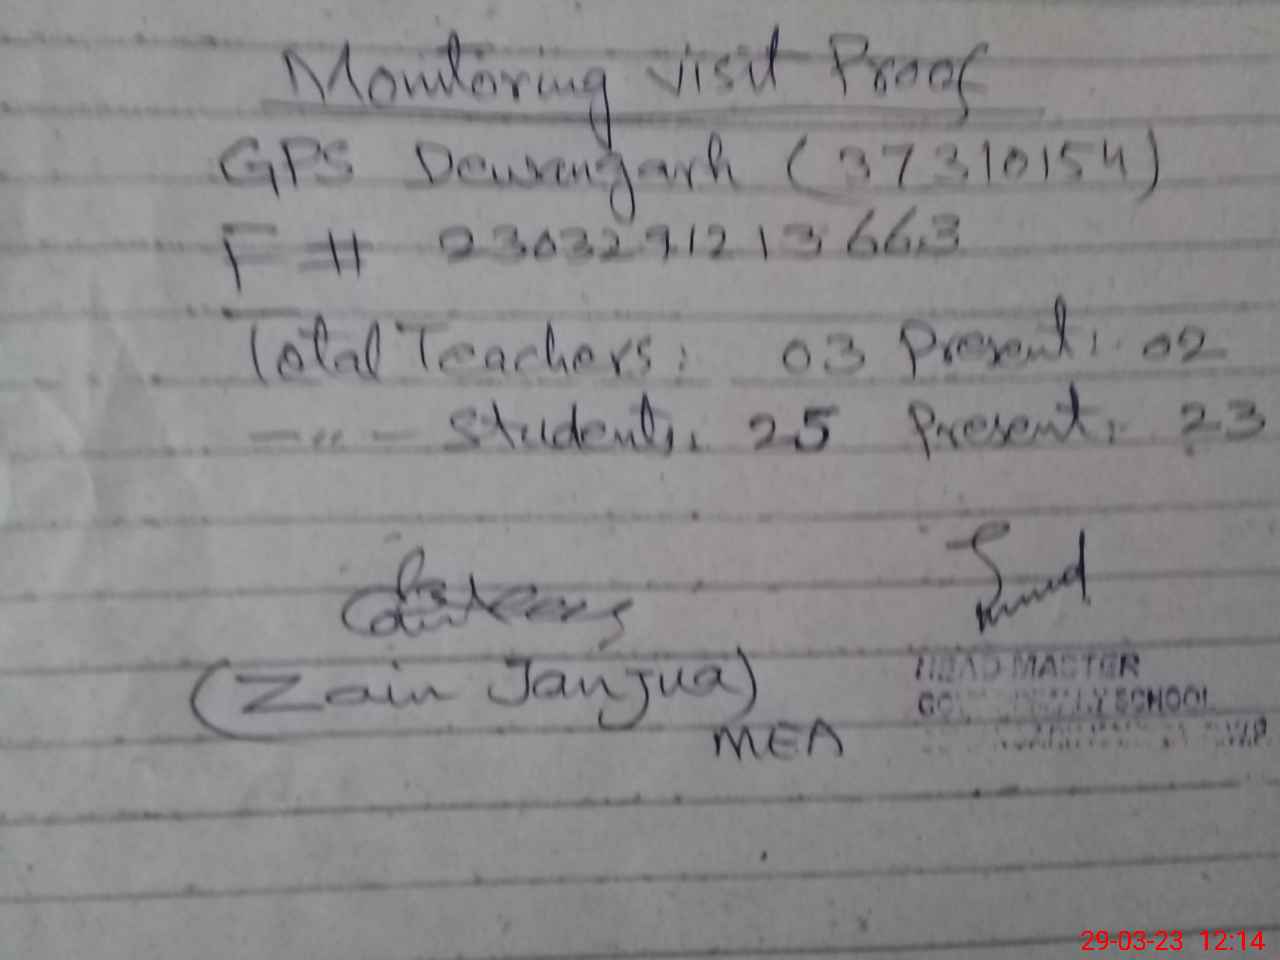 Monitoring visit Proof
GPS Dewangarh (37310154)
F # 2303291213663
Total Teachers: 03 Present: 02
—〃— Students: 25 Present: 23
(Zain Janjua)
MEA
HEAD MASTER
SCHOOL
29-03-23 12:14